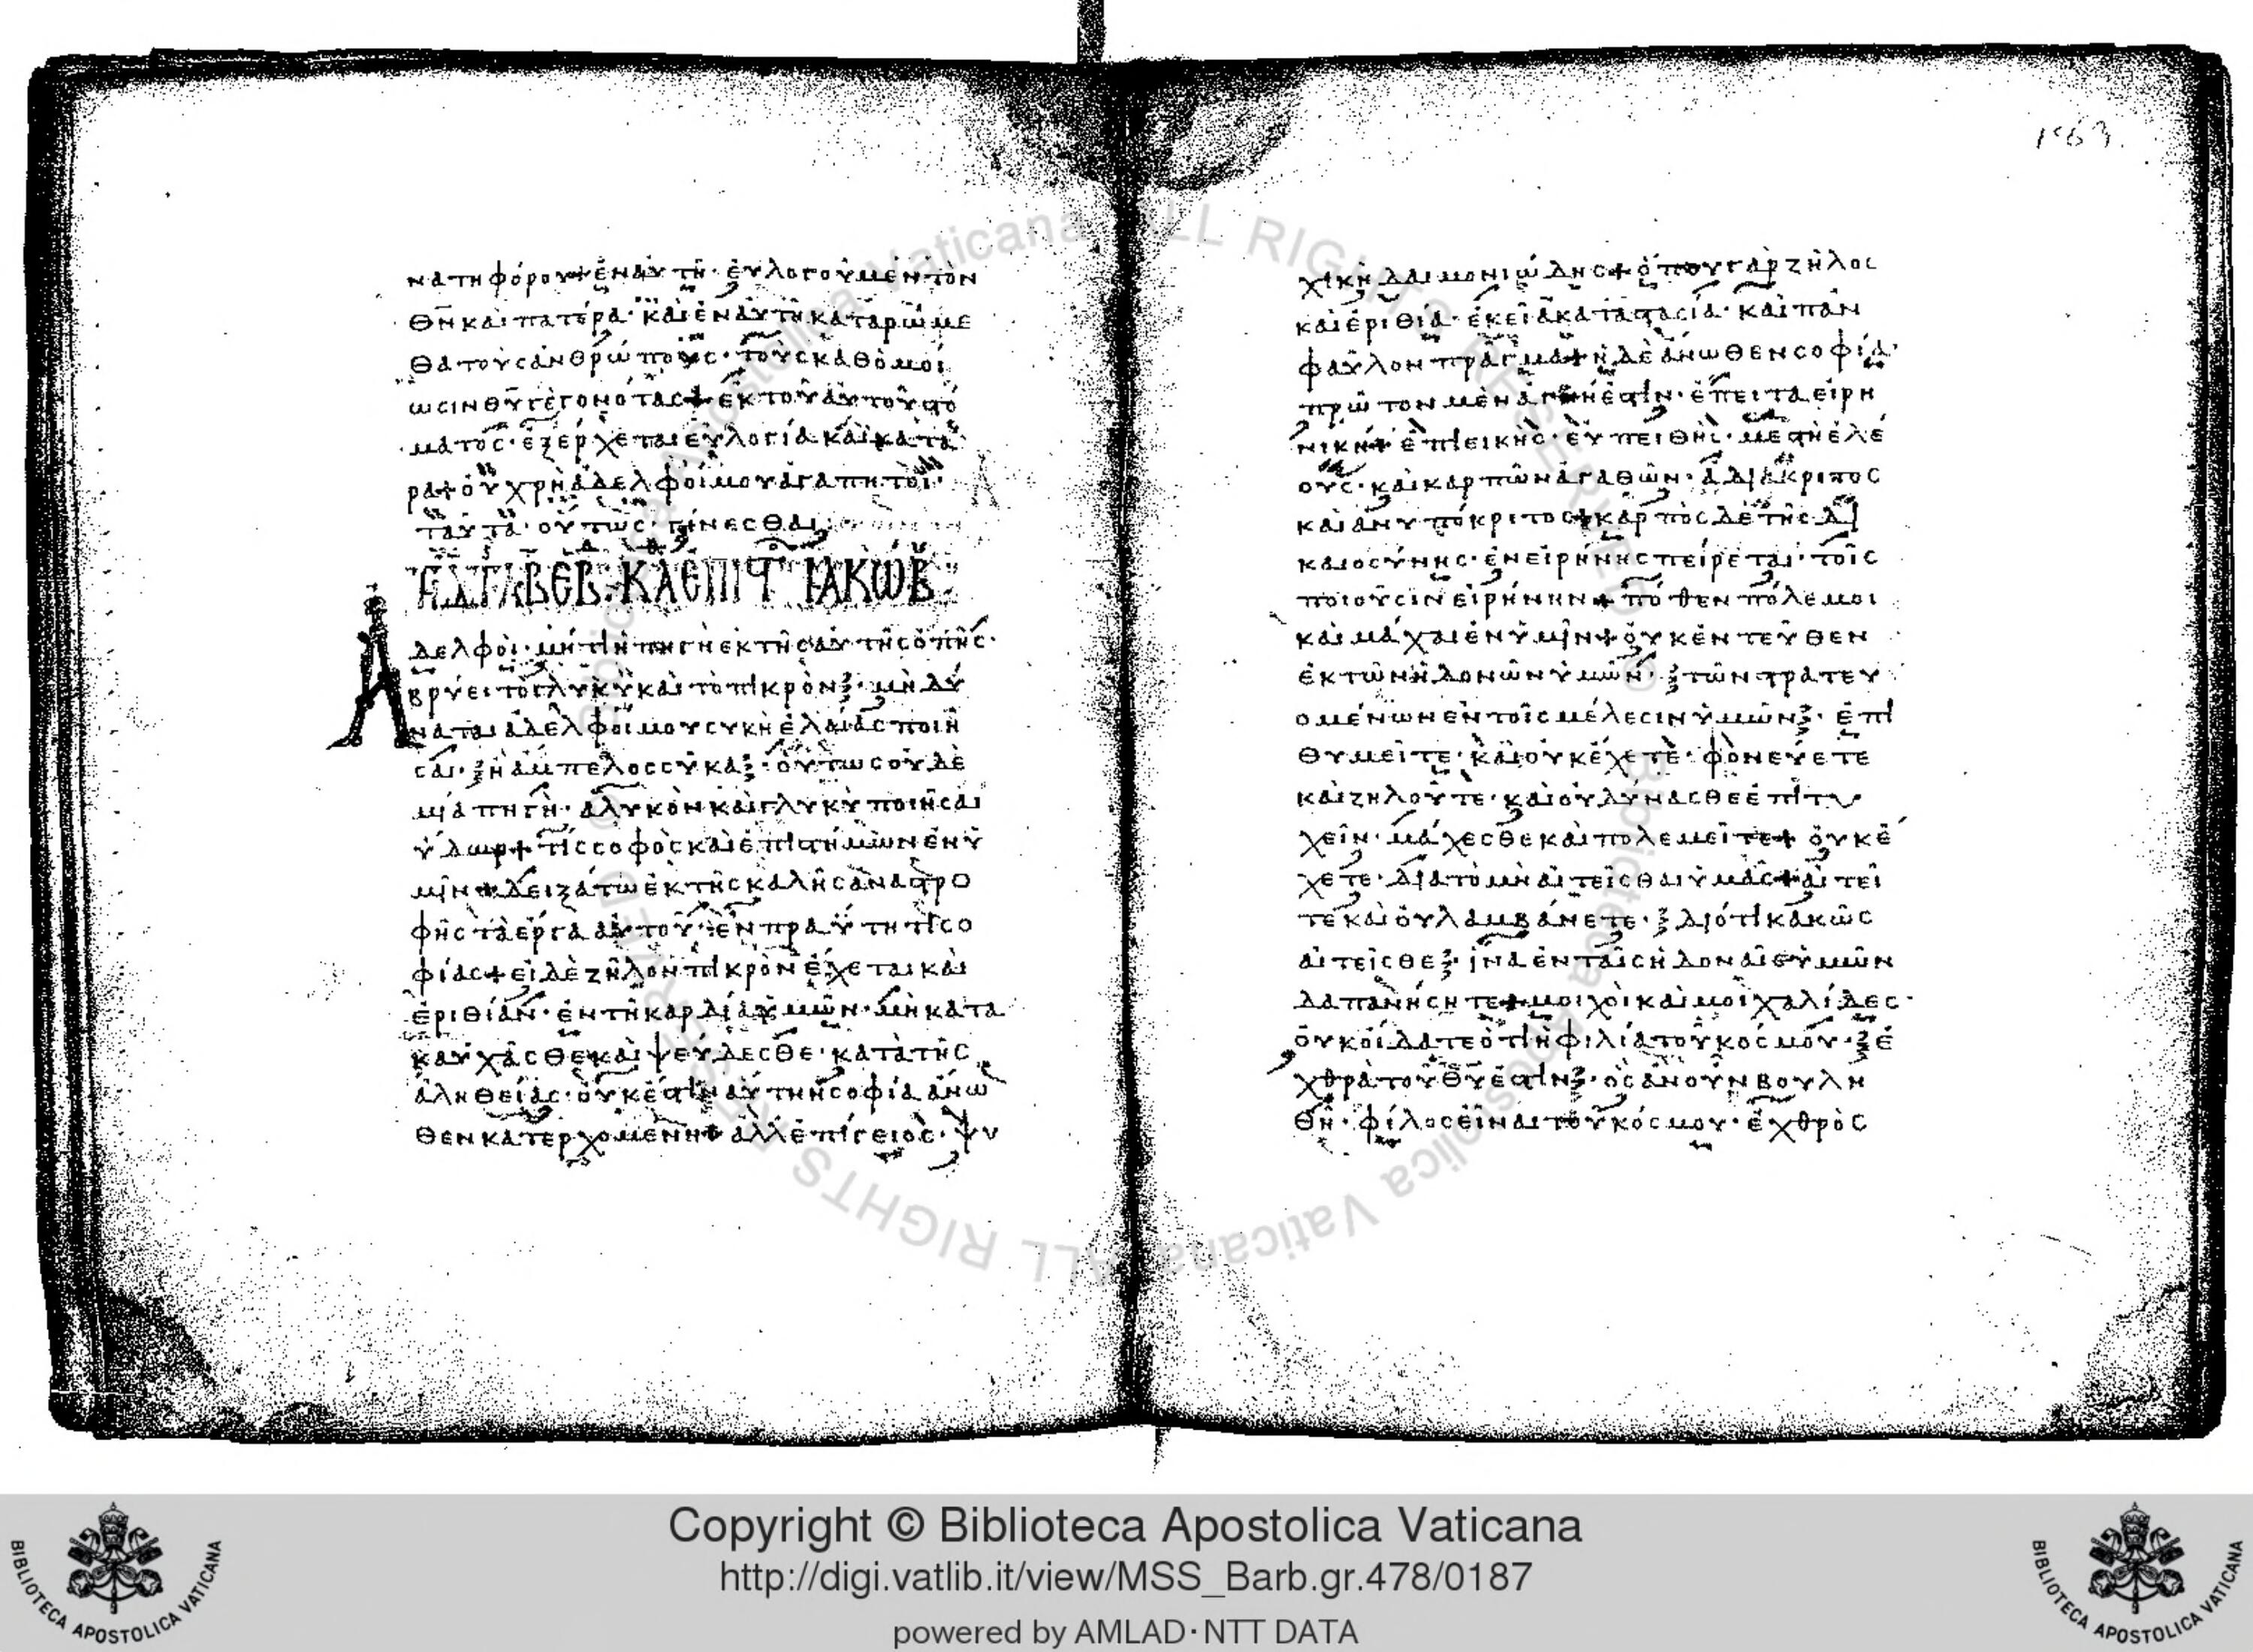 νατηφόρου + ἐν αὐτῆ · εὐλογοῦμεν τὸν
θν καὶ πατέρα · καὶ ἐν αὐτῆ καταρώμε
θα τοὺς ἀνθρώπους · τοὺς καθ ὁμοί
ωσιν θυ γεγονότας + ἐκ τοῦ αὐτοῦ στό
ματος · ἐξέρχεται εὐλογία καὶ κατά
ρα + οὐ χρὴ ἀδελφοί μου ἀγαπητοὶ ·
ταῦτα · οὕτως · γίνεσθαι
ἀδελφοὶ · μήτι ἡ πηγὴ ἐκ τῆς αὐτῆς ὀπῆς ·
βρύει τὸ γλυκὺ καὶ τὸ πικρὸν · μὴ δύ
ναται ἀδελφοί μου συκῆ ἐλαίας ποιῆ
σαι · ἢ ἄμπελος σύκα · οὕτως οὐδὲ
μία πηγὴ · ἁλυκὸν καὶ γλυκὺ ποιῆσαι
ὕδωρ + τίς σοφὸς καὶ ἐπιστήμων ἐν ὑ
μῖν + δειξάτω ἐκ τῆς καλῆς ἀναστρο
φῆς τὰ ἔργα αὐτοῦ · ἐν πραΰτητι σο
φίας + εἰ δὲ ζῆλον πικρὸν ἔχεται καὶ
ἐριθίαν · ἐν τῆ καρδία ὑμῶν · μὴ κατα
καυχᾶσθε καὶ ψεύδεσθε · κατὰ τῆς
ἀληθείας · οὐκ ἔστιν αὕτη ἡ σοφία ἄνω
θεν κατερχομένη + ἀλλ ἐπίγειος · ψυ
163.
χικὴ δαιμονιώδης + ὅπου γὰρ ζῆλος
καὶ ἐριθία · ἐκεῖ ἀκαταστασία · καὶ πᾶν
φαῦλον πρᾶγμα + ἡ δὲ ἄνωθεν σοφία ·
πρῶτον μὲν ἁγνή ἐστιν · ἔπειτα εἰρη
νικὴ + ἐπιεικὴς · εὐπειθὴς · μεστὴ ἐλέ
ους · καὶ καρπῶν ἀγαθῶν · ἀδιάκριτος
καὶ ἀνυπόκριτος + καρπὸς δὲ τῆς δι
καιοσύνης · ἐν εἰρήνη σπείρεται · τοῖς
ποιοῦσιν εἰρήνην + πόθεν πόλεμοι
καὶ μάχαι ἐν ὑμῖν + οὐκ ἐντεῦθεν
ἐκ τῶν ἡδονῶν ὑμῶν · τῶν στρατευ
ομένων ἐν τοῖς μέλεσιν ὑμῶν · ἐπι
θυμεῖτε · καὶ οὐκ ἔχετε · φονεύετε
καὶ ζηλοῦτε · καὶ οὐ δύνασθε ἐπιτυ
χεῖν · μάχεσθε καὶ πολεμεῖτε + οὐκ ἔ
χετε · διὰ τὸ μὴ αἰτεῖσθαι ὑμᾶς + αἰτεῖ
τε καὶ οὐ λαμβάνετε · διότι κακῶς
αἰτεῖσθε · ἵνα ἐν ταῖς ἡδοναῖς ὑμῶν
δαπανήσητε + μοιχοὶ καὶ μοιχαλίδες ·
οὐκ οἴδατε ὅτι ἡ φιλία τοῦ κόσμου · ἔ
χθρα τοῦ θυ ἐστιν · ὃς ἂν οὖν βουλη
θῆ · φίλος εἶναι τοῦ κόσμου · ἐχθρὸς
Copyright © Biblioteca Apostolica Vaticana
http://digi.vatlib.it/view/MSS_Barb.gr.478/0187
powered by AMLAD·NTT DATA
BIBLIOTECA APOSTOLICA VATICANA
BIBLIOTECA APOSTOLICA VATICANA